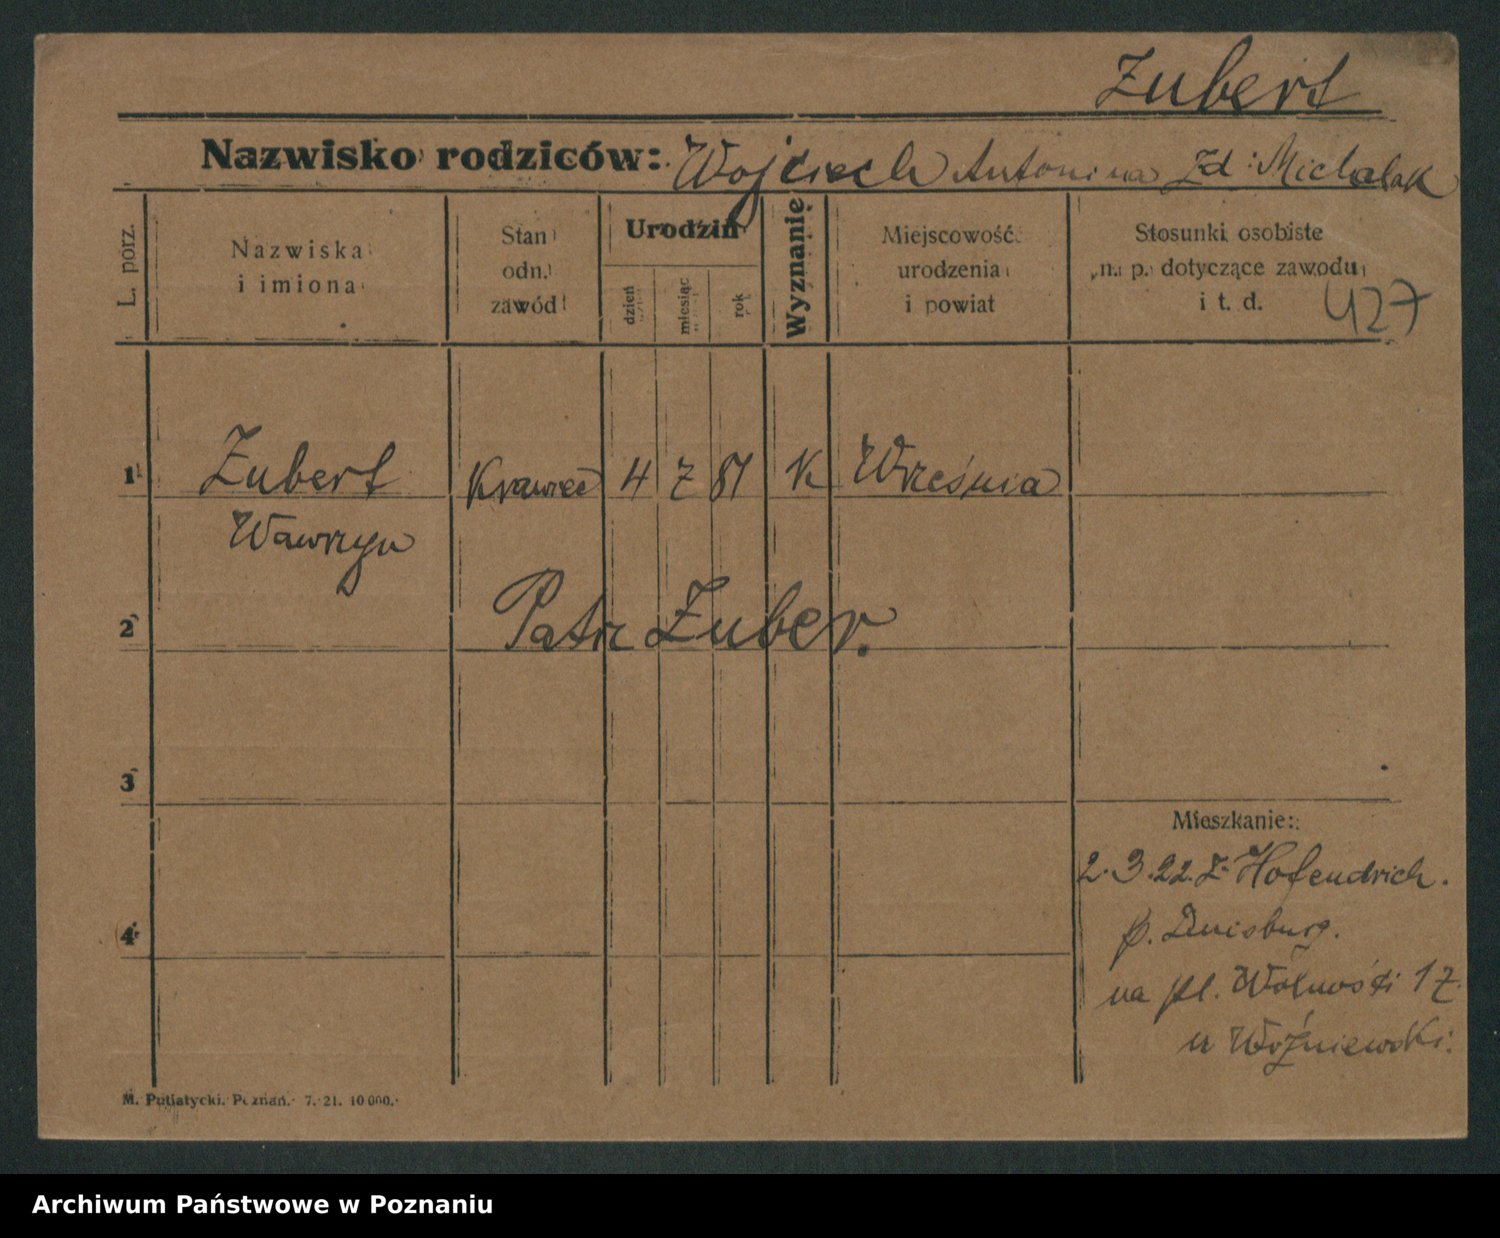 Zubert
Nazwisko rodziców: Wojciech Antonina zd: Michalak
L. porz.
Nazwiska i imiona
Stan odn. zawód
Urodzin
dzień
miesiąc
rok
Wyznanie
Miejscowość urodzenia i powiat
Stosunki osobiste n. p. dotyczące zawodu i t. d.
427
1 Zubert Krawiec 4 7 81 K Września
Wawrzyn
2 Patrz Zuber.
3
Mieszkanie:
2.3.22. z Hofendrich.
4 p. Duisburg.
na pl. Wolności 17.
u Woźniewski.
M. Putiatycki. Poznań. 7. 21. 10 000.
Archiwum Państwowe w Poznaniu